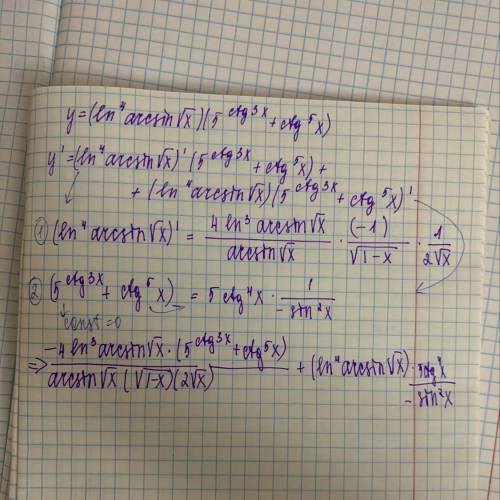 y = (ln⁴ arcsin √x)(5^(ctg 3x) + ctg⁵ x)
y' = (ln⁴ arcsin √x)' (5^(ctg 3x) + ctg⁵ x) +
+ (ln⁴ arcsin √x)(5^(ctg 3x) + ctg⁵ x)'
① (ln⁴ arcsin √x)' = (4 ln³ arcsin √x)/(arcsin √x) · (-1)/(√(1-x)) · 1/(2√x)
② (5^(ctg 3x) + ctg⁵ x) = 5 ctg⁴ x · 1/(- sin² x)
const = 0
=> (-4 ln³ arcsin √x · (5^(ctg 3x) + ctg⁵ x))/(arcsin √x (√(1-x))(2√x)) + (ln⁴ arcsin √x) · (5 ctg⁴ x)/(- sin² x)